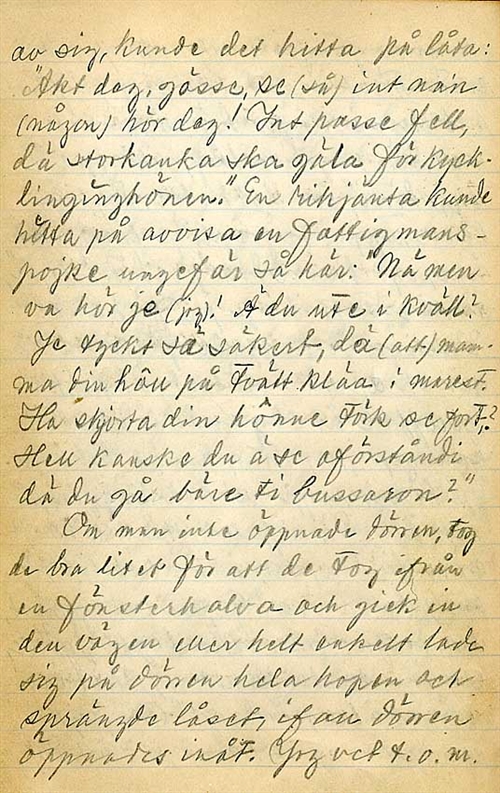 av sig, kunde det hitta på låta:
"Akt dag, gåsse, se (så) int nån
(någon) hör dag! Int passe fell,
dä storkanka ska gala för kyck-
lingunghönen." En rikjänta kunde
hitta på avvisa en fattigmans-
pojke ungefär så här: "Nä men
va hör je (jag)! Ä du ute i kväll?
Je tyckt så säkert, dä (att) mam-
ma din höll på tvätt kläa i marest.
Ha skjorta din hönne törk se fort,?
Hell kanske du ä se oförståndi
dä du gå bäre ti bussaron?"
Om man inte öppnade dörren, tog
de bra litet för att de tog ifrån
en fönsterhalva och gick in
den vägen eller helt enkelt lade
sig på dörren hela hopen och
sprängde låset, ifall dörren
öppnades inåt. Jag vet t.o.m.